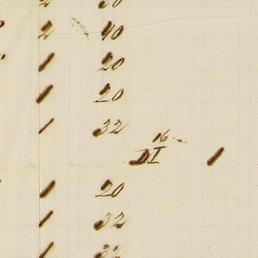 2 40
1 20
1 20
1 32
16
DI 1
1 20
1 32
1 32